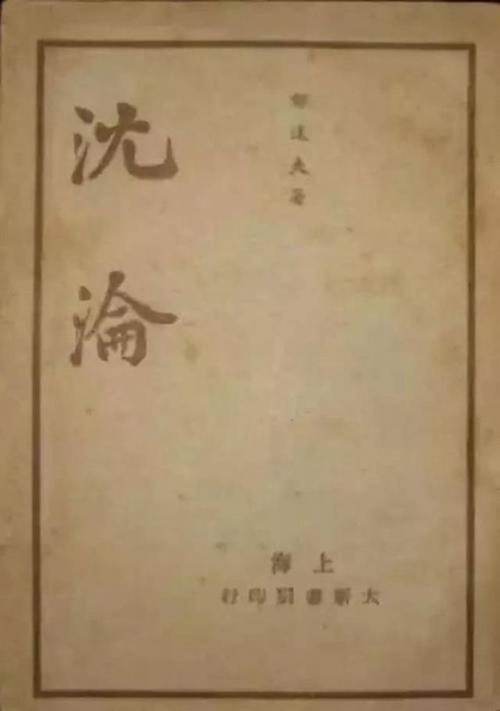 沈淪
郁達夫著
上海
大新書局印行